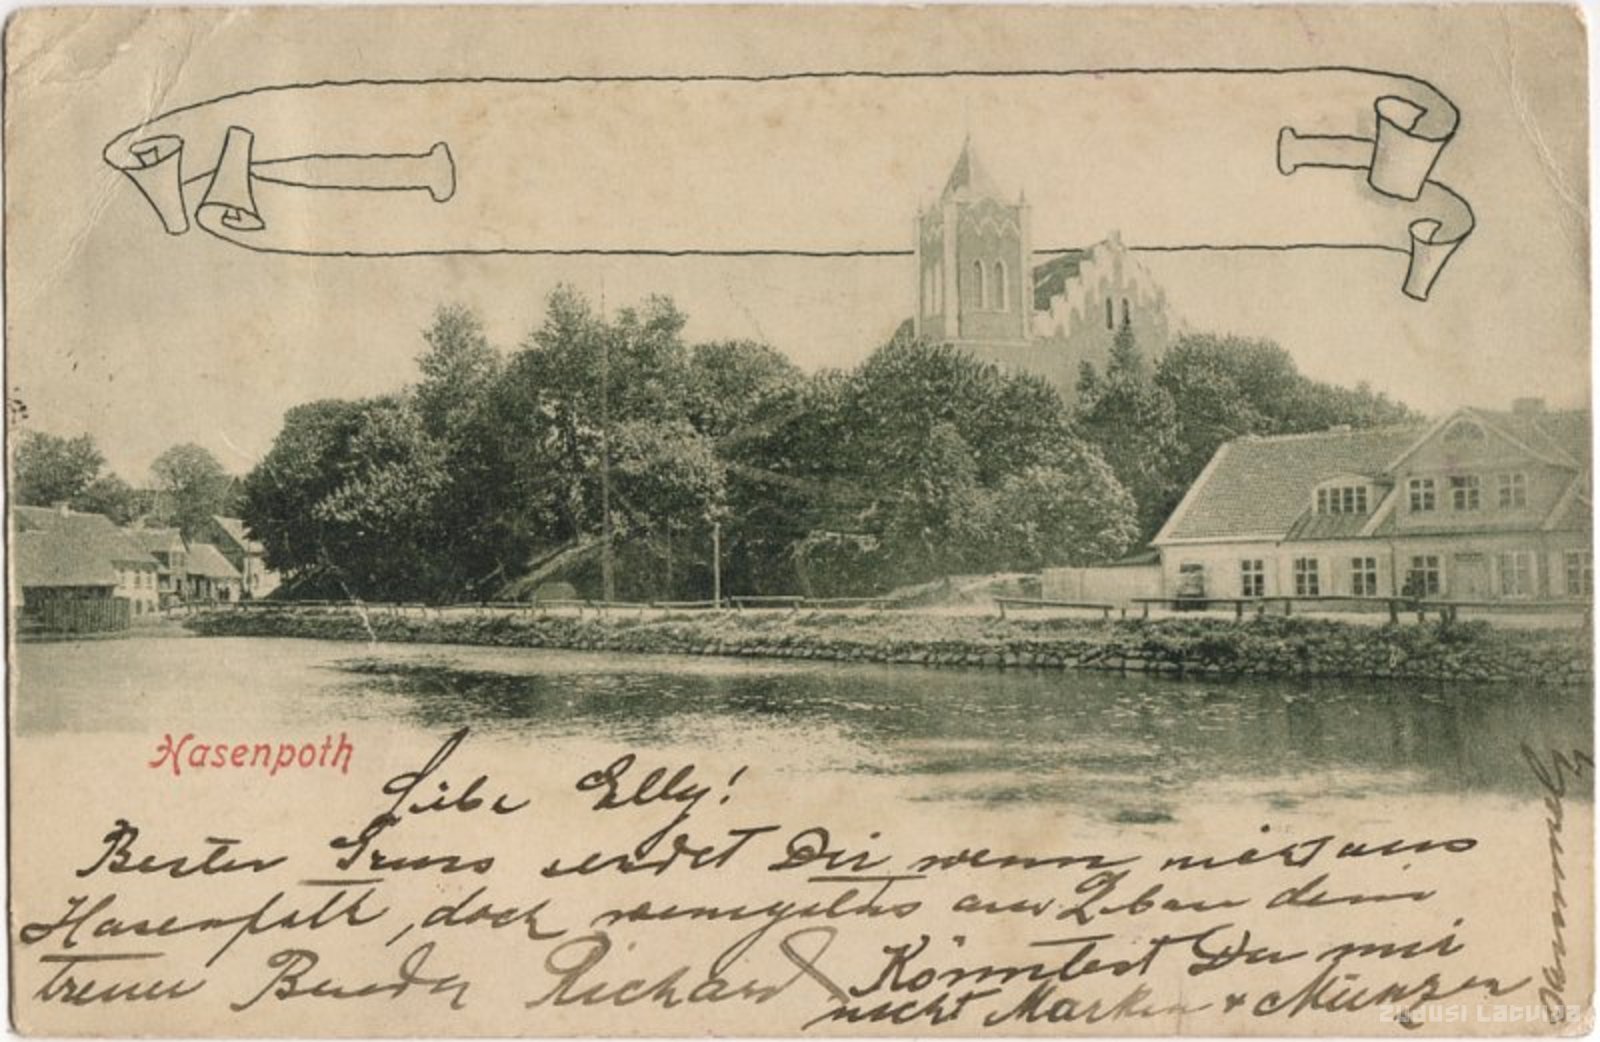 Hasenpoth
Liebe Elly!
Bester Gruss sendet Dir wenn nicht aus
Hasenpoth, doch wenigstens aus Libau dein
treuer Bruder Richard
Könntest Du mir
nicht Marken + Münzen
sammeln
Zudusi Latvija